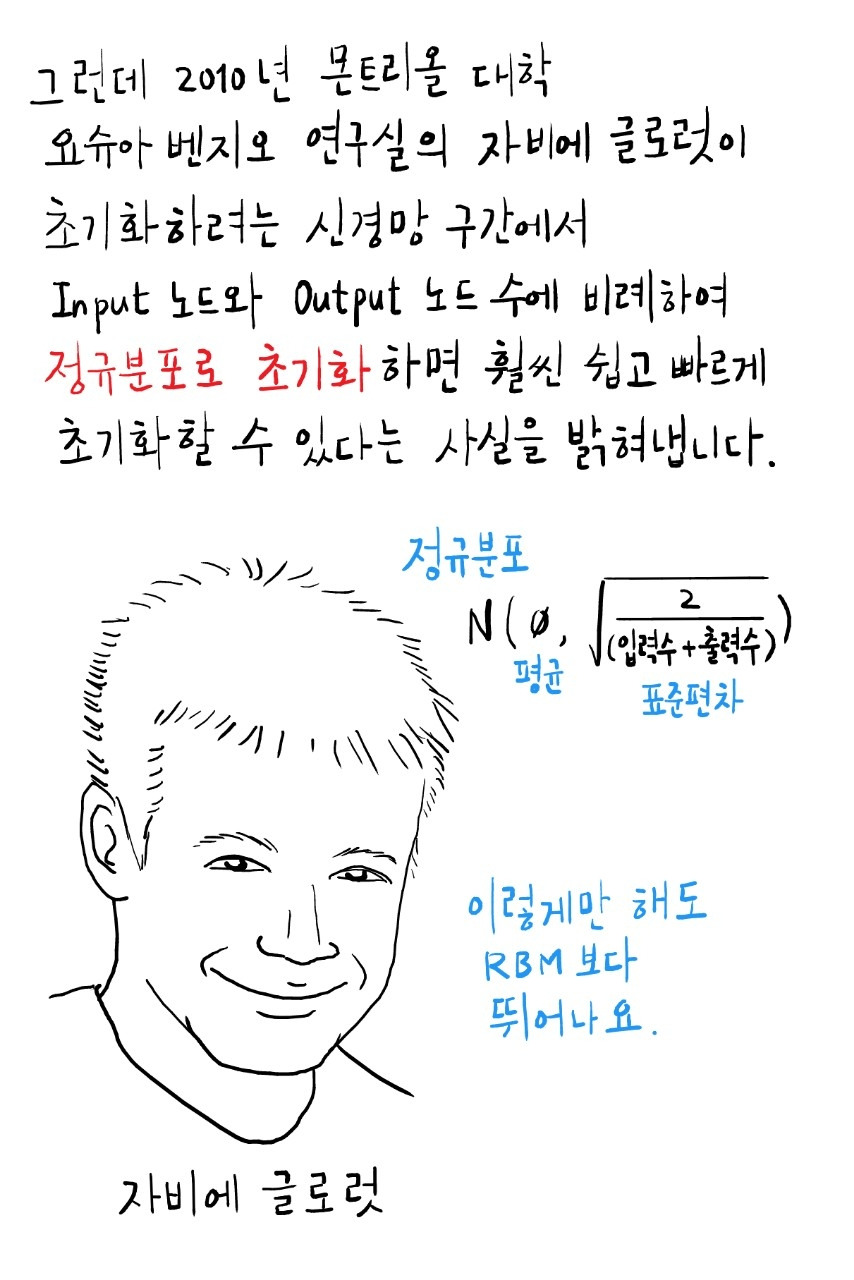 그런데 2010년 몬트리올 대학
요슈아 벤지오 연구실의 자비에 글로럿이
초기화하려는 신경망 구간에서
Input 노드와 Output 노드 수에 비례하여
정규분포로 초기화하면 훨씬 쉽고 빠르게
초기화할 수 있다는 사실을 밝혀냅니다.
정규분포
N(0, √(2/(입력수+출력수)))
평균
표준편차
이렇게만 해도
RBM 보다
뛰어나요.
자비에 글로럿